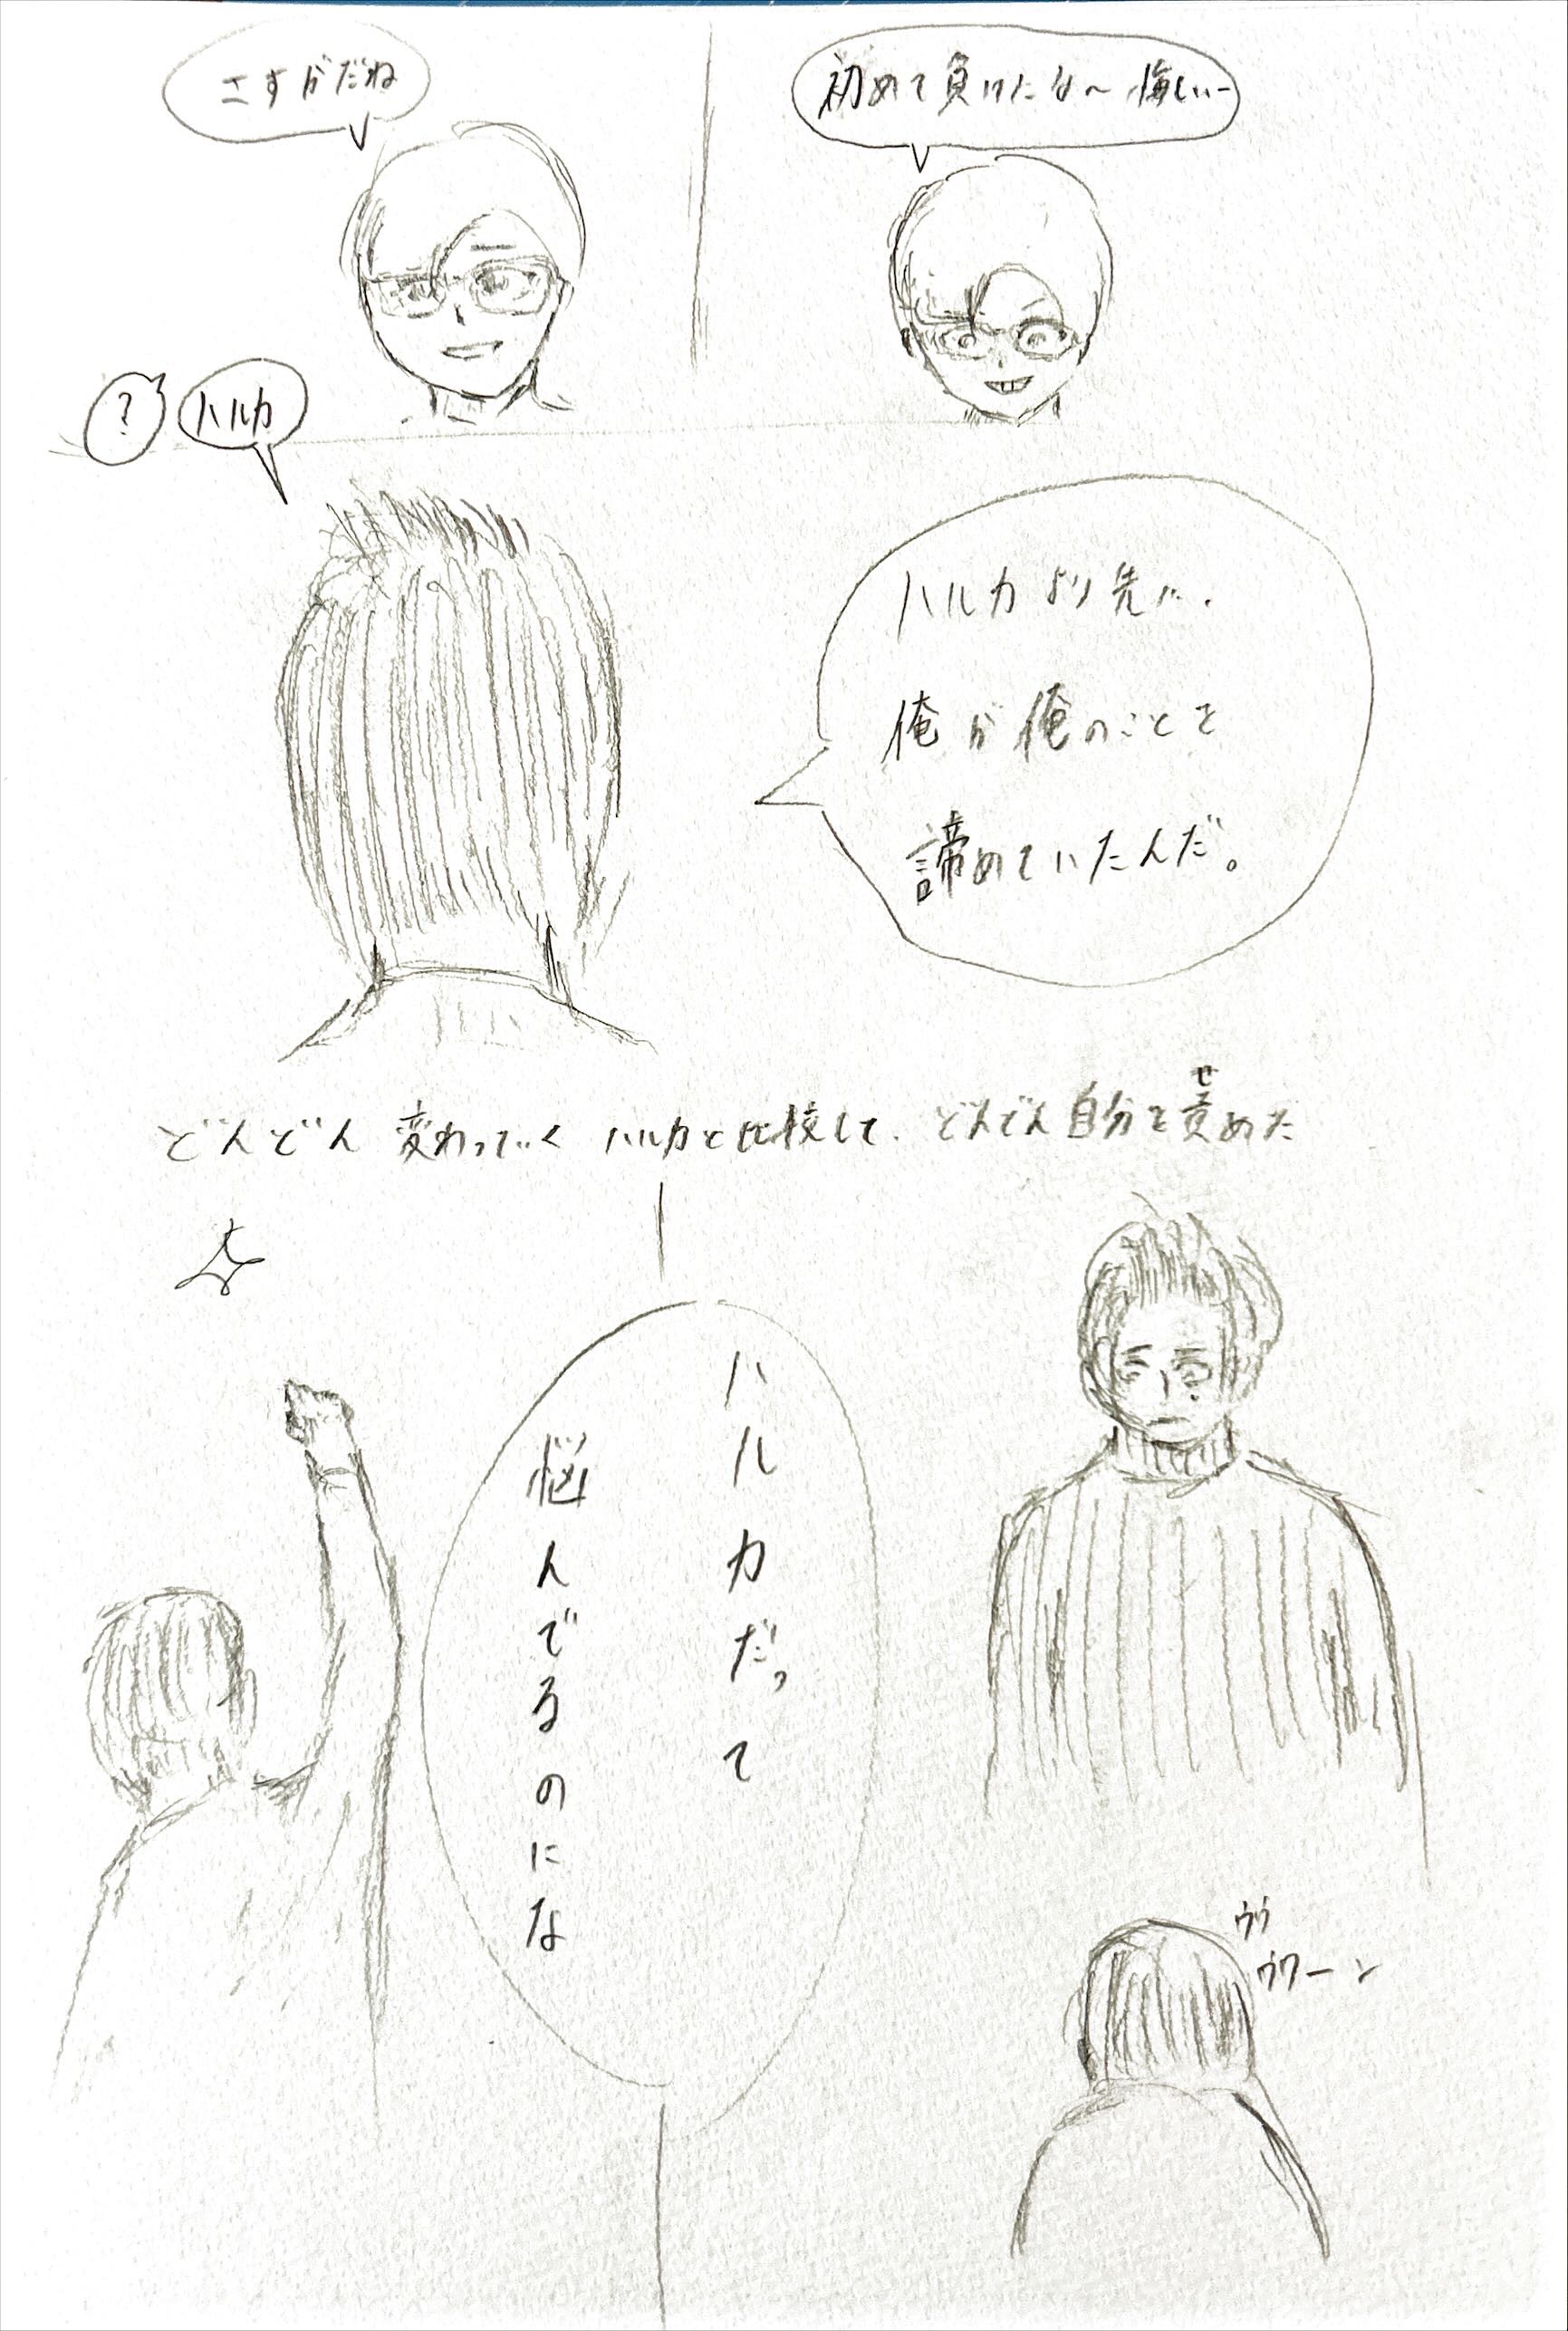 さすがだね
初めて負けたな〜悔しいー
?
ハルカ
ハルカより先に、
俺が俺のことを
諦めていたんだ。
どんどん変わっていくハルカと比較して、どんどん自分を責めた
せ
ハルカだって
悩んでるのにな
ウウ
ウワーン